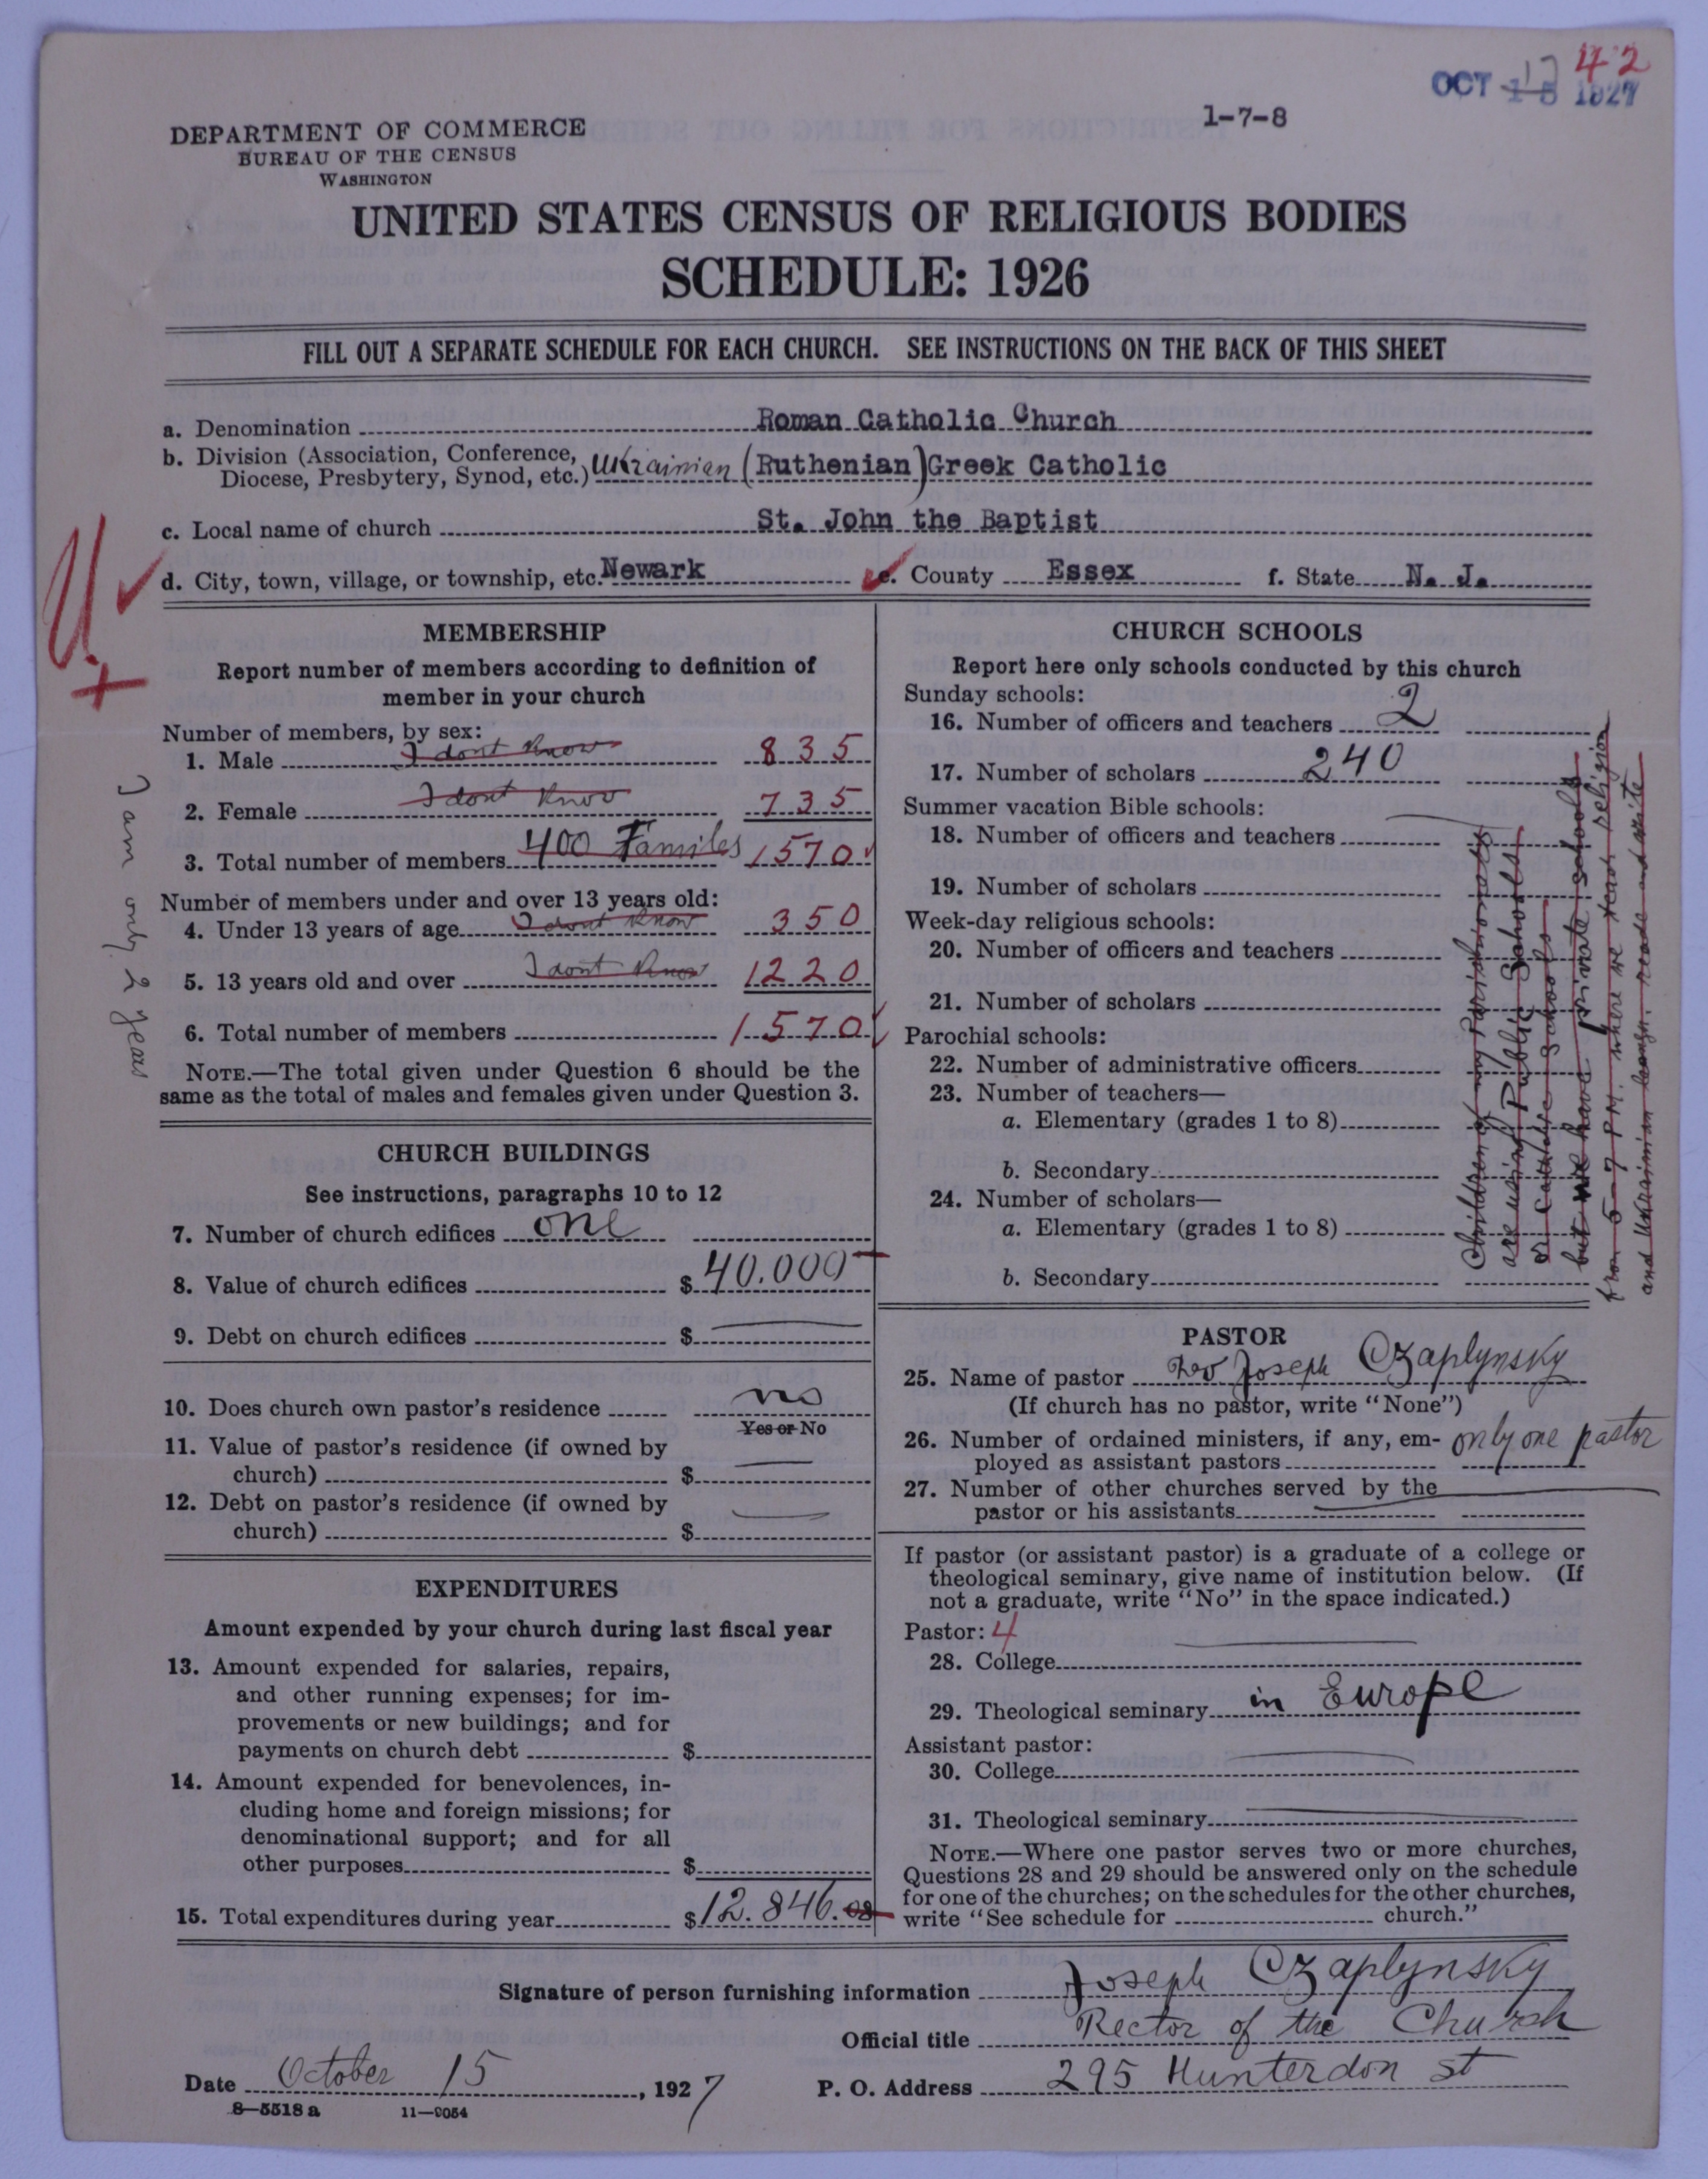 42
OCT 15 17 1927
1-7-8
DEPARTMENT OF COMMERCE
BUREAU OF THE CENSUS
WASHINGTON
UNITED STATES CENSUS OF RELIGIOUS BODIES
SCHEDULE: 1926
FILL OUT A SEPARATE SCHEDULE FOR EACH CHURCH. SEE INSTRUCTIONS ON THE BACK OF THIS SHEET
a. Denomination Roman Catholic Church
b. Division (Association, Conference, Diocese, Presbytery, Synod, etc.) Ukrainian (Ruthenian) Greek Catholic
c. Local name of church St. John the Baptist
d. City, town, village, or township, etc. Newark e. County Essex f. State N. J.
MEMBERSHIP
Report number of members according to definition of
member in your church
Number of members, by sex:
1. Male I dont know 835
2. Female I dont know 735
3. Total number of members 400 Familes 1570
Number of members under and over 13 years old:
4. Under 13 years of age I dont know 350
5. 13 years old and over I dont know 1220
6. Total number of members 1570
NOTE.—The total given under Question 6 should be the
same as the total of males and females given under Question 3.
I am only 2 years
CHURCH BUILDINGS
See instructions, paragraphs 10 to 12
7. Number of church edifices one
8. Value of church edifices $ 40.000
9. Debt on church edifices $
10. Does church own pastor's residence no
Yes or No
11. Value of pastor's residence (if owned by
church) $
12. Debt on pastor's residence (if owned by
church) $
EXPENDITURES
Amount expended by your church during last fiscal year
13. Amount expended for salaries, repairs,
and other running expenses; for im-
provements or new buildings; and for
payments on church debt $
14. Amount expended for benevolences, in-
cluding home and foreign missions; for
denominational support; and for all
other purposes $
15. Total expenditures during year $ 12.846.08
CHURCH SCHOOLS
Report here only schools conducted by this church
Sunday schools:
16. Number of officers and teachers 2
17. Number of scholars 240
Summer vacation Bible schools:
18. Number of officers and teachers
19. Number of scholars
Week-day religious schools:
20. Number of officers and teachers
21. Number of scholars
Parochial schools:
22. Number of administrative officers
23. Number of teachers—
a. Elementary (grades 1 to 8)
b. Secondary
24. Number of scholars—
a. Elementary (grades 1 to 8)
b. Secondary
Children of my Parishioners
are using Public Schools
or Catholic Schools
but we have private schools
from 5-7 P.M. where we teach religion
and Ukrainian reade and write
PASTOR
25. Name of pastor Rev Joseph Czaplynsky
(If church has no pastor, write "None")
26. Number of ordained ministers, if any, em-
ployed as assistant pastors only one pastor
27. Number of other churches served by the
pastor or his assistants
If pastor (or assistant pastor) is a graduate of a college or
theological seminary, give name of institution below. (If
not a graduate, write "No" in the space indicated.)
Pastor: 4
28. College
29. Theological seminary in Europe
Assistant pastor:
30. College
31. Theological seminary
NOTE.—Where one pastor serves two or more churches,
Questions 28 and 29 should be answered only on the schedule
for one of the churches; on the schedules for the other churches,
write "See schedule for church."
Signature of person furnishing information Joseph Czaplynsky
Official title Rector of the Church
Date October 15, 1927 P. O. Address 295 Hunterdon st
8—5518 a 11—9054